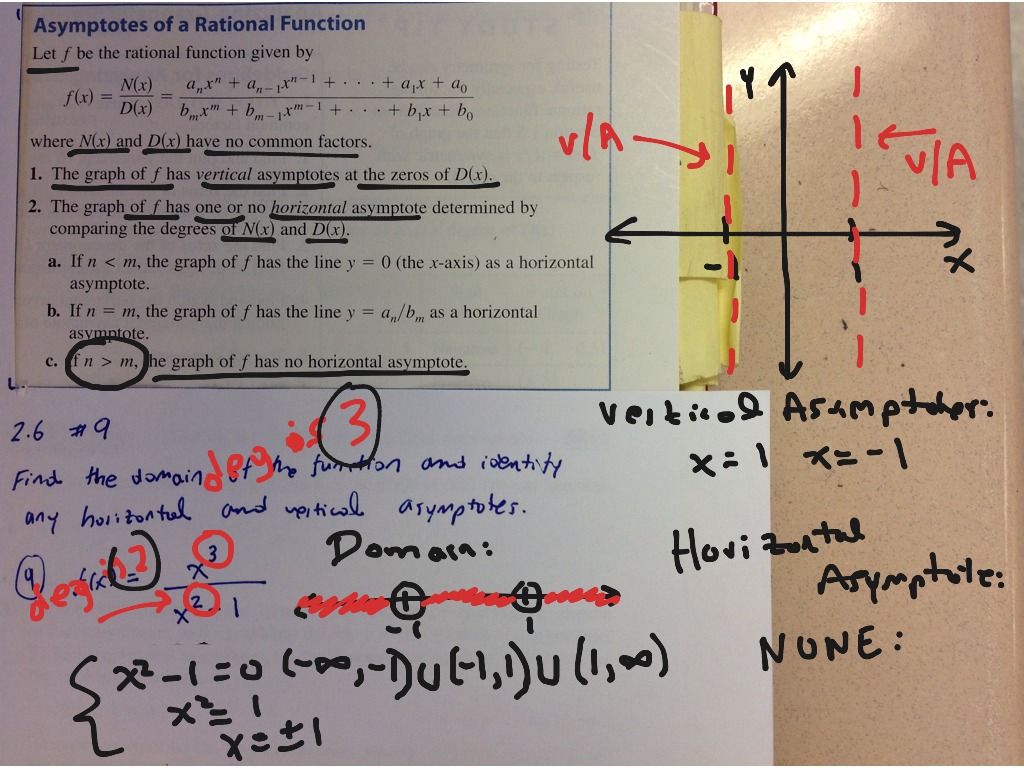 Asymptotes of a Rational Function
Let f be the rational function given by
f(x) = N(x)/D(x) = (aₙxⁿ + aₙ₋₁xⁿ⁻¹ + · · · + a₁x + a₀)/(bₘxᵐ + bₘ₋₁xᵐ⁻¹ + · · · + b₁x + b₀)
where N(x) and D(x) have no common factors.
1. The graph of f has vertical asymptotes at the zeros of D(x).
2. The graph of f has one or no horizontal asymptote determined by
comparing the degrees of N(x) and D(x).
a. If n < m, the graph of f has the line y = 0 (the x-axis) as a horizontal
asymptote.
b. If n = m, the graph of f has the line y = aₙ/bₘ as a horizontal
asymptote.
c. If n > m, the graph of f has no horizontal asymptote.
Y
V/A
V/A
-1
1
X
2.6 #9
deg is 3
Find the domain of the function and identify
any horizontal and vertical asymptotes.
9 f(x) = x³/(x² - 1)
deg is 2
Domain:
-1 1
(-∞,-1)∪(-1,1)∪(1,∞)
x² - 1 = 0
x² = 1
x = ±1
Vertical Asymptotes:
x = 1 x = -1
Horizontal
Asymptote:
NONE: